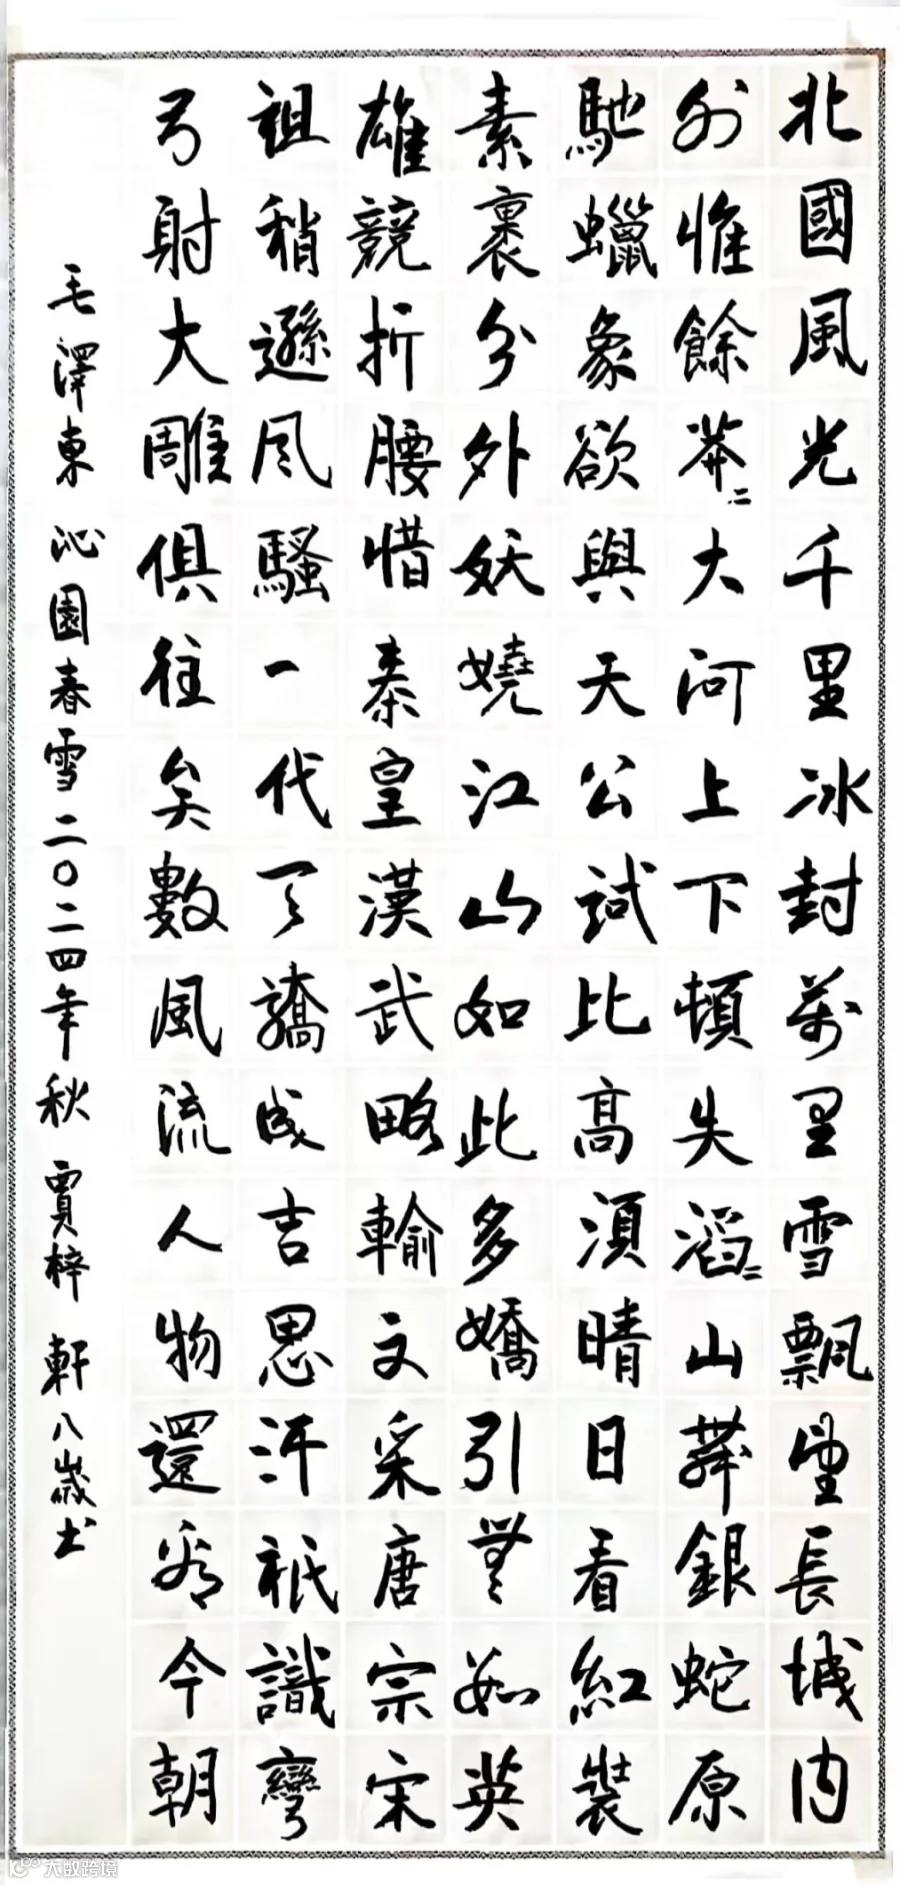 北國風光千里冰封萬里雪飄望長城内
外惟餘莽〻大河上下頓失滔〻山舞銀蛇原
馳蠟象欲與天公試比高須晴日看紅裝
素裹分外妖嬈江山如此多嬌引無數英
雄競折腰惜秦皇漢武略輸文采唐宗宋
祖稍遜风騷一代天驕成吉思汗祇識彎
弓射大雕俱往矣數風流人物還看今朝
毛澤東 沁園春雪二〇二四年秋 賈梓軒八歲书
大数跨境